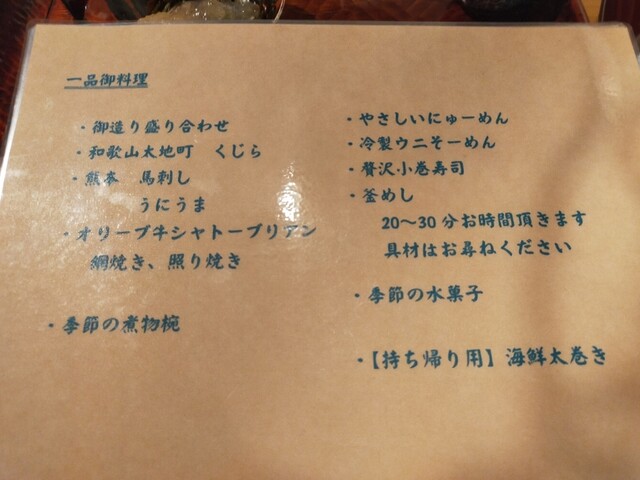 一品御料理
・御造り盛り合わせ
・和歌山太地町　くじら
・熊本　馬刺し
うにうま
・オリーブ牛シャトーブリアン
網焼き、照り焼き
・季節の煮物椀
・やさしいにゅーめん
・冷製ウニそーめん
・贅沢小巻寿司
・釜めし
20〜30分お時間頂きます
具材はお尋ねください
・季節の水菓子
・【持ち帰り用】海鮮太巻き